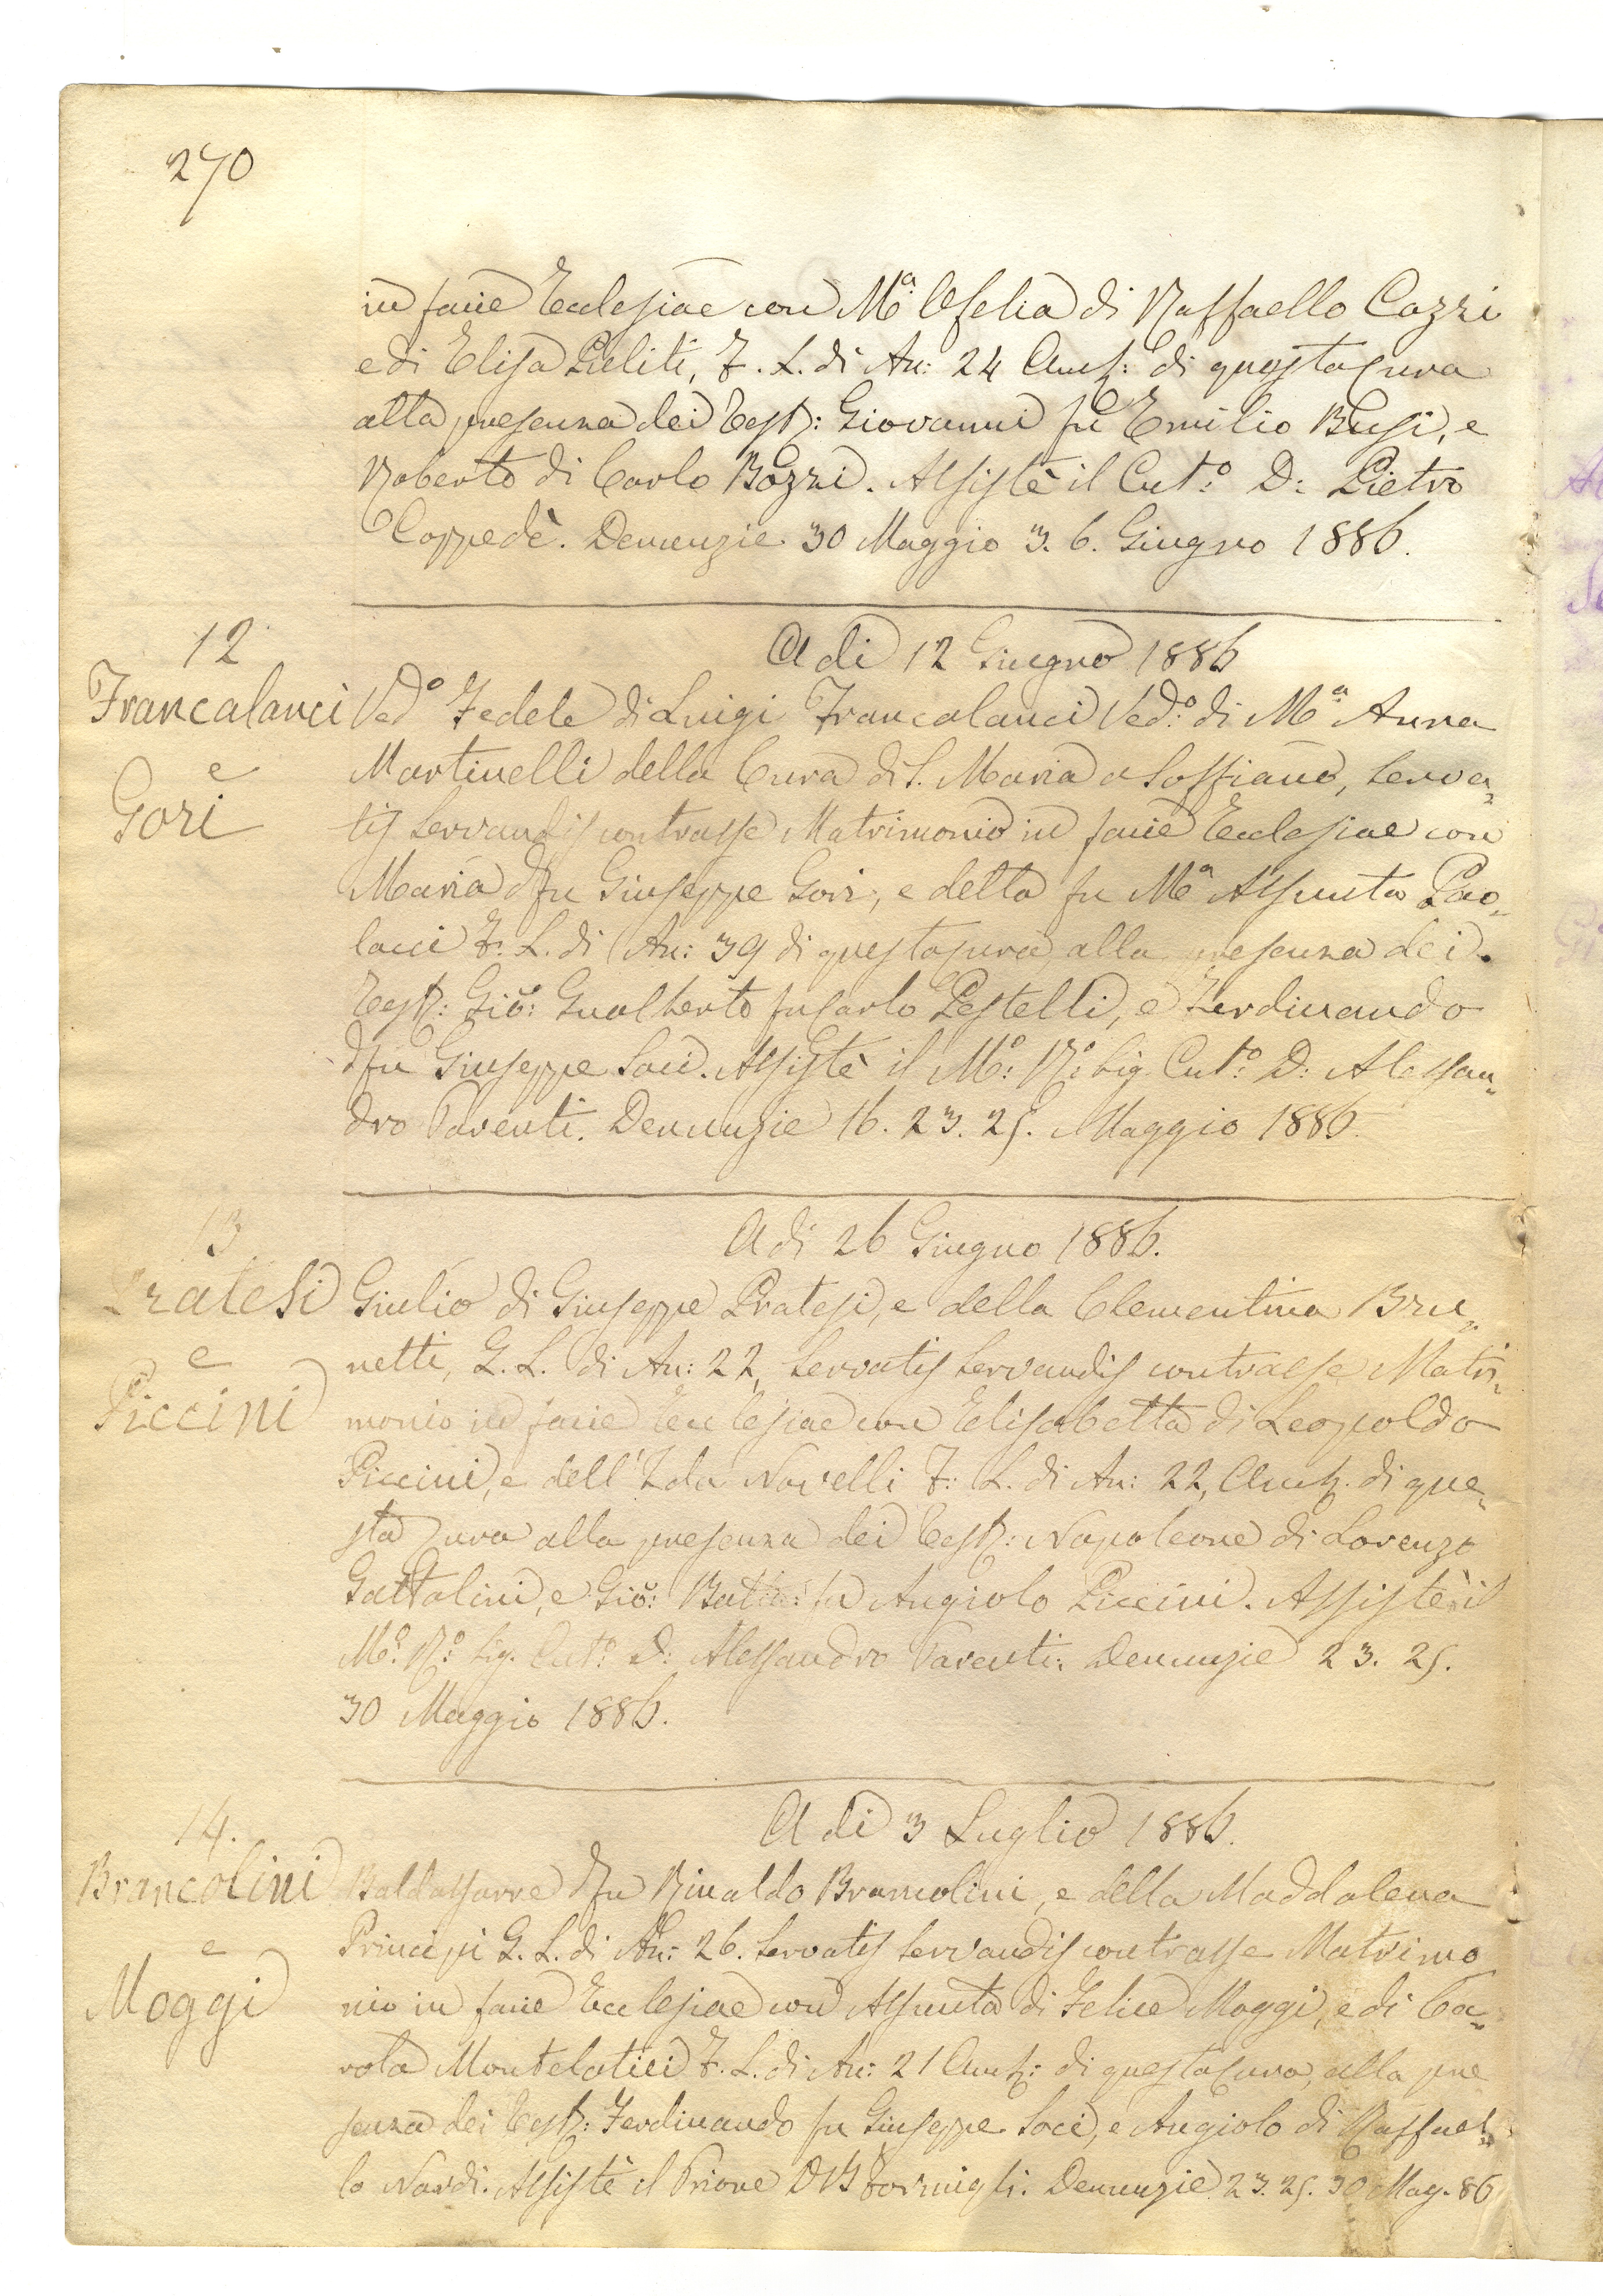 270
in facie Ecclesiae con Mª Ofelia di Raffaello Cozzi
e di Elisa Pieliti, F. L. di An: 24 Amb: di questa Cura
alla presenza dei Test: Giovanni fu Emilio Busi, e
Roberto di Carlo Bozzi. Assistè il Cut.º D: Pietro
Coppedè. Denunzie 30 Maggio 3. 6. Giugno 1886.
12
A di 12 Giugno 1886
Francalanci
e
Gori
Ved.º Fedele di Luigi Francalanci Ved:º di Mª Anna
Martinelli della Cura di S. Maria a Soffiano, Serva=
tis Servandis contrasse Matrimonio in facie Ecclesiae con
Maria del fu Giuseppe Gori, e della fu Mª Assunta Pao=
lacci F. L. di An: 39 di questa Cura, alla presenza dei
Test: Gio: Gualberto fu Carlo Pestelli, e Ferdinando
del fu Giuseppe Soci. Assistè il M:º R:º Sig. Cut:º D: Alessan=
dro Parenti. Denunzie 16. 23. 25. Maggio 1886.
13
A di 26 Giugno 1886.
Pratesi
e
Piccini
Giulio di Giuseppe Pratesi, e della Clementina Bru=
netti, G. L. di An: 22, Servatis Servandis contrasse Matri=
monio in facie Ecclesiae con Elisabetta di Leopoldo
Piccini, e dell' Ida Novelli F: L. di An: 22, Amb. di que=
sta Cura alla presenza dei Test: Napoleone di Lorenzo
Gattolini, e Gio: Batta: fu Angiolo Piccini. Assistè il
M:º R:º Sig. Cut:º D: Alessandro Parenti. Denunzie 23. 25.
30 Maggio 1886.
14.
A di 3 Luglio 1886.
Brancolini
e
Moggi
Baldassarre del fu Rinaldo Brancolini, e della Maddalena
Principi G. L. di An: 26. Servatis Servandis contrasse Matrimo
nio in facie Ecclesiae con Assunta di Felice Moggi, e di Ca=
rola Montelatici F. L. di An: 21 Amb: di questa Cura, alla pre
senza dei Test: Ferdinando fu Giuseppe Soci, e Angiolo di Raffael=
lo Nardi. Assistè il Priore Denunzie 23. 25. 30 Mag. 86